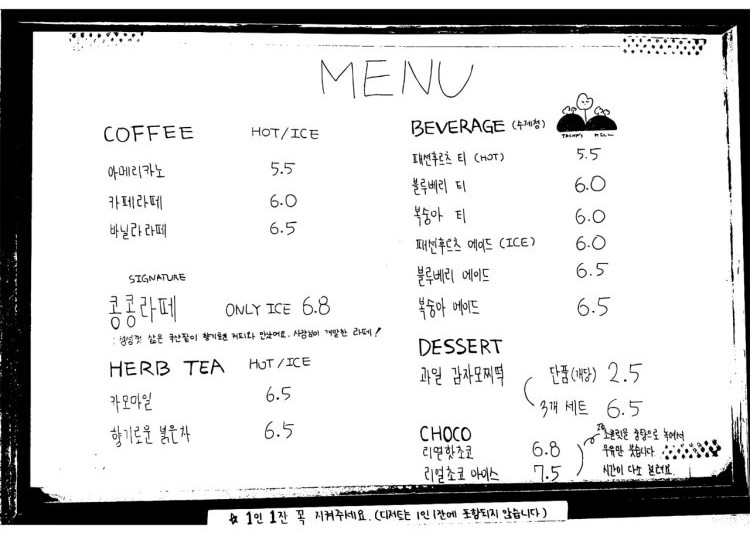 MENU
COFFEE HOT/ICE
아메리카노 5.5
카페라떼 6.0
바닐라라떼 6.5
SIGNATURE
콩콩라떼 ONLY ICE 6.8
: 정성껏 삶은 국산팥이 향기로운 커피와 만났어요. 사장님이 개발한 라떼!
HERB TEA HOT/ICE
카모마일 6.5
향기로운 붉은차 6.5
BEVERAGE (수제청)
패션후르츠 티 (HOT) 5.5
블루베리 티 6.0
복숭아 티 6.0
패션후르츠 에이드 (ICE) 6.0
블루베리 에이드 6.5
복숭아 에이드 6.5
DESSERT
과일 감자모찌떡 단품(개당) 2.5
3개 세트 6.5
CHOCO
리얼핫초코 6.8
리얼초코 아이스 7.5
초콜릿을 중탕으로 녹여서
우유만 붓습니다.
시간이 다소 걸려요.
☆ 1인 1잔 꼭 지켜주세요. (디저트는 1인 1잔에 포함되지 않습니다)